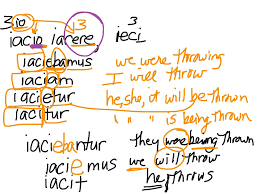 3 io 3 3
iacio iacere ieci
iaciebamus we were throwing
iaciam I will throw
iacietur he, she, it will be thrown
iacitur " " " is being thrown
iaciebantur they were being thrown
iaciemus we will throw
iacit he throws